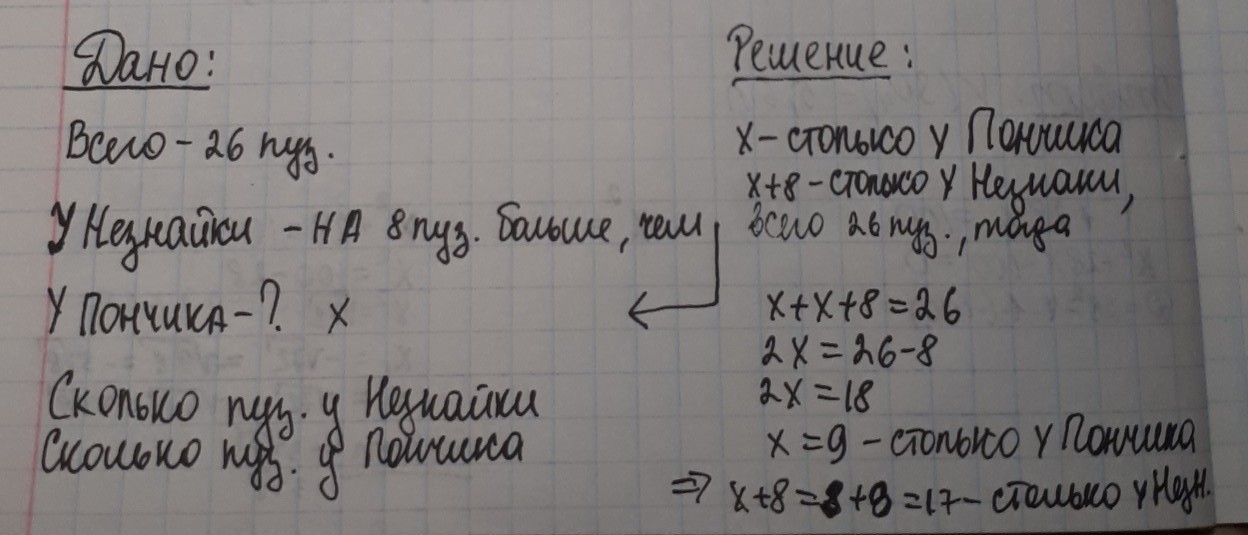 Дано:
Всего - 26 пуз.
У Незнайки - НА 8 пуз. больше, чем
У Пончика - ? x
Сколько пуз. у Незнайки
Сколько пуз. у Пончика
Решение:
x - столько у Пончика
x+8 - столько у Незнаки,
всего 26 пуз., тогда
x+x+8=26
2x=26-8
2x=18
x=9 - столько у Пончика
⇒ x+8= +8=17 - столько у Незн.